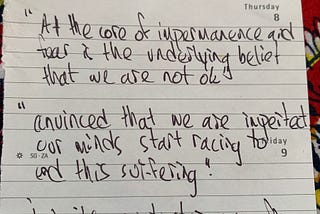 Thursday
8
"At the core of impermanence and
fear is the underlying belief
that we are not ok"
"convinced that we are
our minds start racing to
end this suffering".
9
SO-ZA